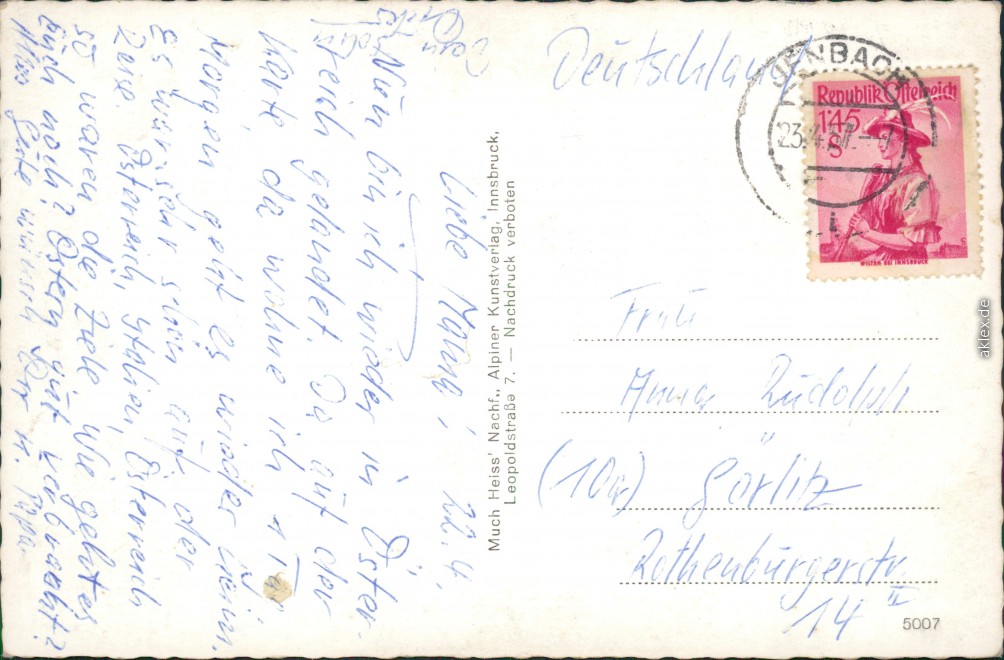 Liebe Mama, 22.4.
Nun bin ich wieder in Öster-
reich gelandet. Da auf der
Karte da wohne ich 1 Tag
Morgen geht es wieder heim.
Es war sehr schön auf der
Reise. Österreich, Italien, Österreich
so waren die Ziele. Wie geht es
Euch noch? Ostern gut verbracht?
Alles Gute wünscht Dir u. Papa
Dein
Much Heiss' Nachf., Alpiner Kunstverlag, Innsbruck,
Leopoldstraße 7. — Nachdruck verboten
Deutschland
JENBACH
23.4.57.-
Republik Österreich
1'45
S
WILTEN BEI INNSBRUCK
Frau
Anna Rudolph
(10a) Görlitz
Rothenburgerstr.
14 II
5007
aklex.de